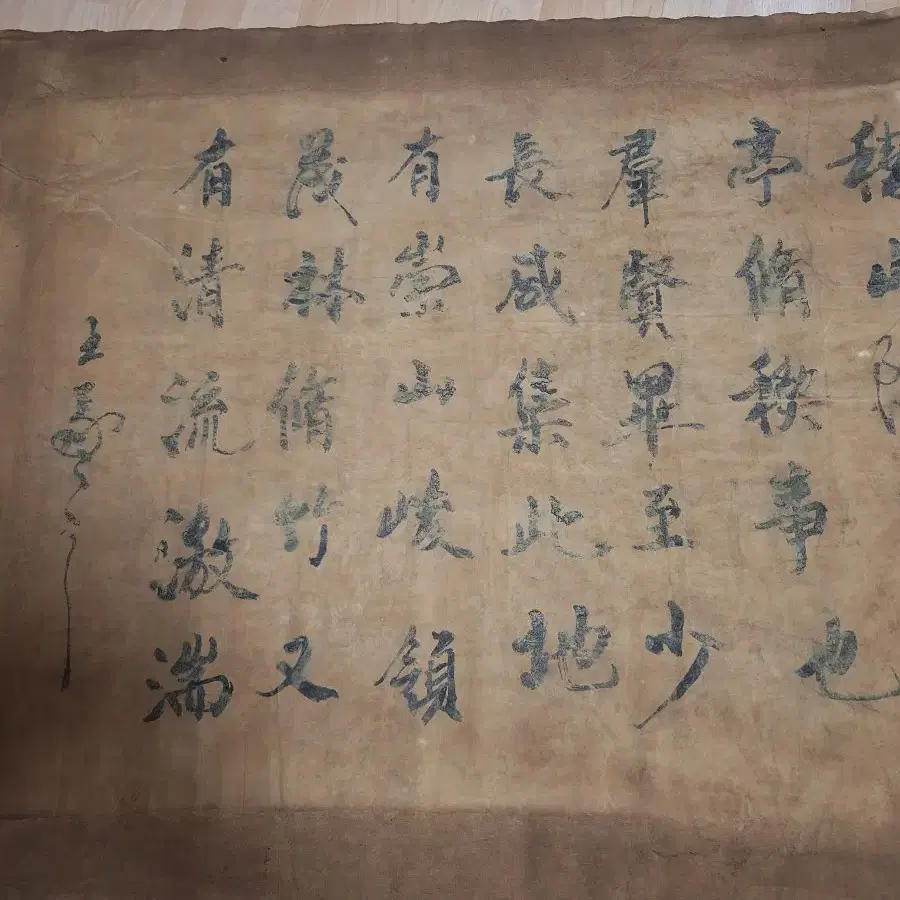 稽山
亭脩禊事也
羣賢畢至少
長咸集此地
有崇山峻領
茂林脩竹又
有清流激湍
王羲之